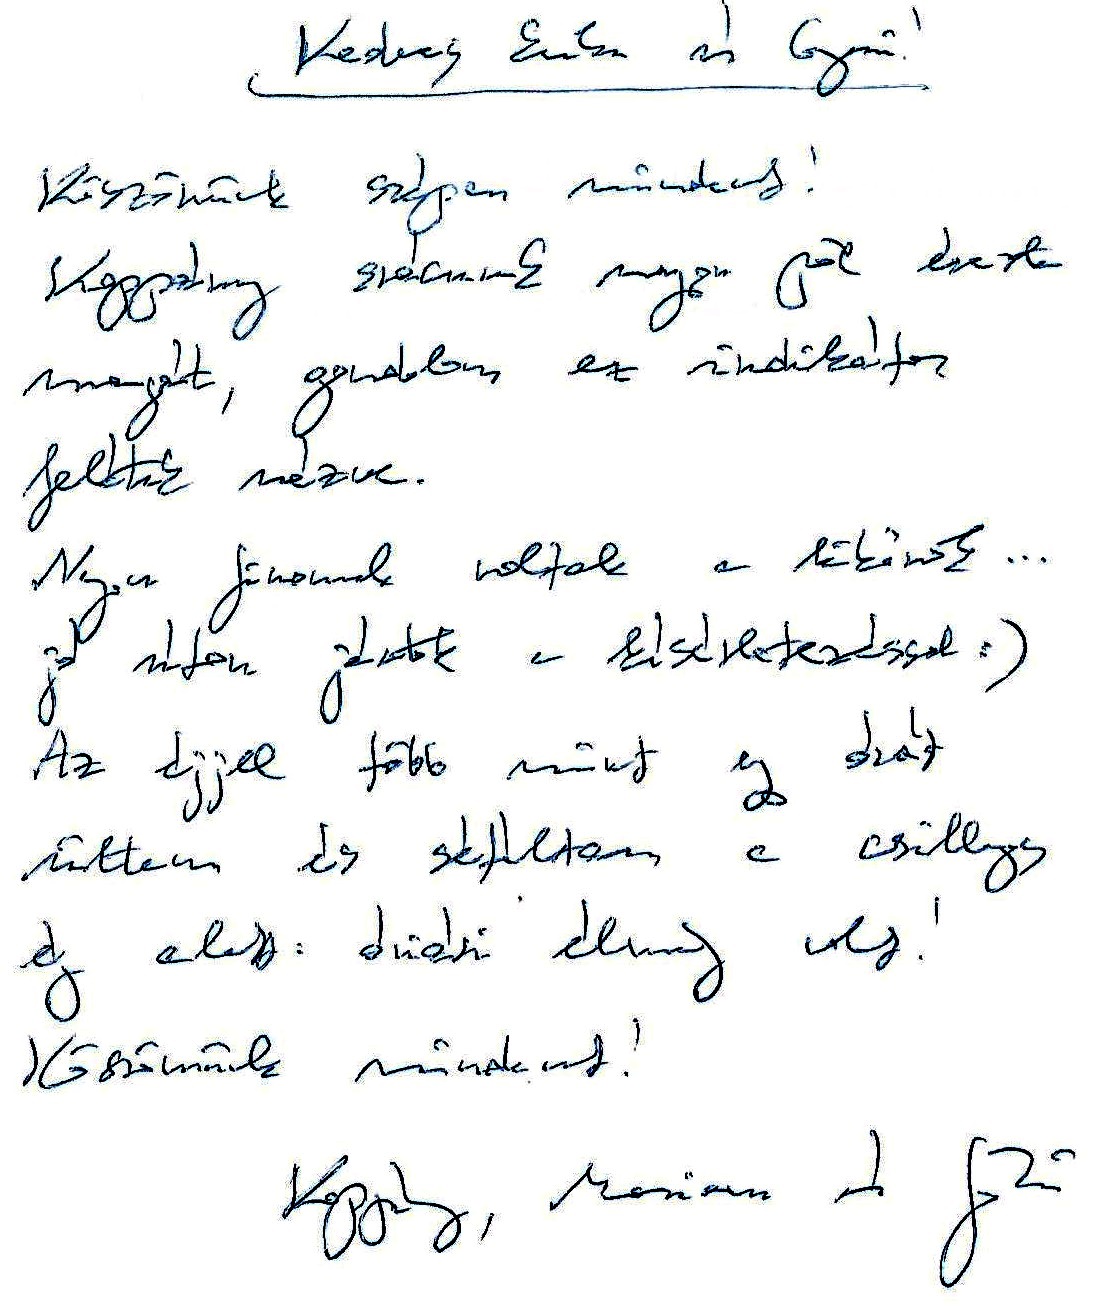 Kedves Erika és Gyuri!
Köszönünk szépen mindent!
Koppány szerintünk nagyon jól érezte
magát, gondolom ez indikátor
felétek nézve.
Nagyon finomak voltak a kiküldők...
jó úton jártok a kísérletezéssel :)
Az éjjel több mint egy órát
ültem és sétáltam a csillagos
ég alatt: óriási élmény volt!
Köszönünk mindent!
Koppány, Mariann és